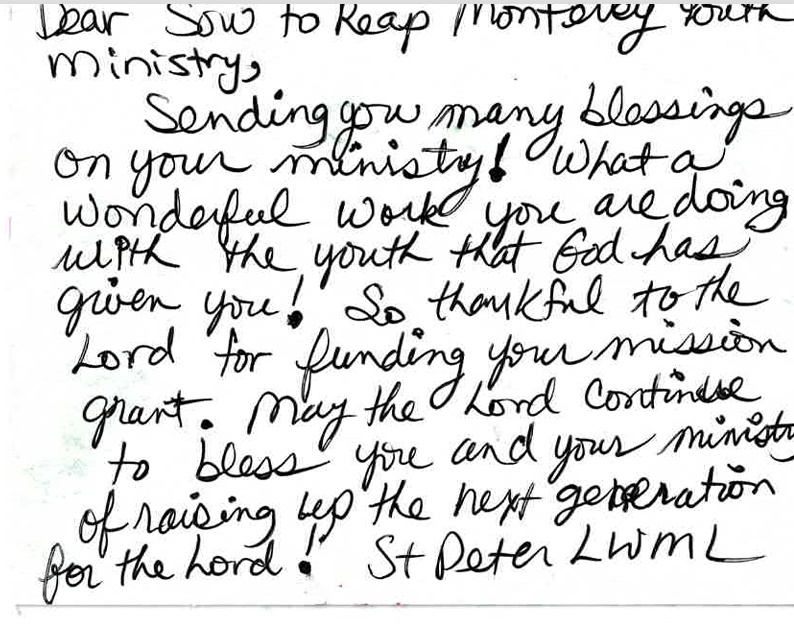 Dear Sow to Reap Monterey Youth
ministry,
Sending you many blessings
on your ministry! What a
wonderful work you are doing
with the youth that God has
given you! So thankful to the
Lord for funding your mission
grant. May the Lord continue
to bless you and your ministry
of raising up the next generation
for the Lord! St Peter LWML